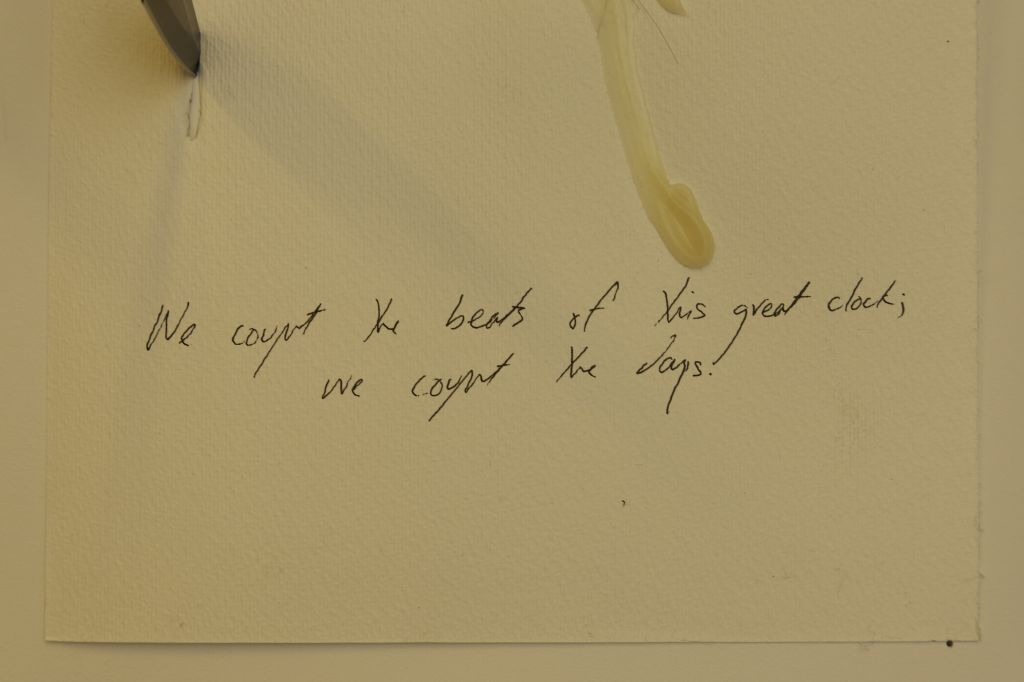 We count the beats of this great clock;
we count the days.